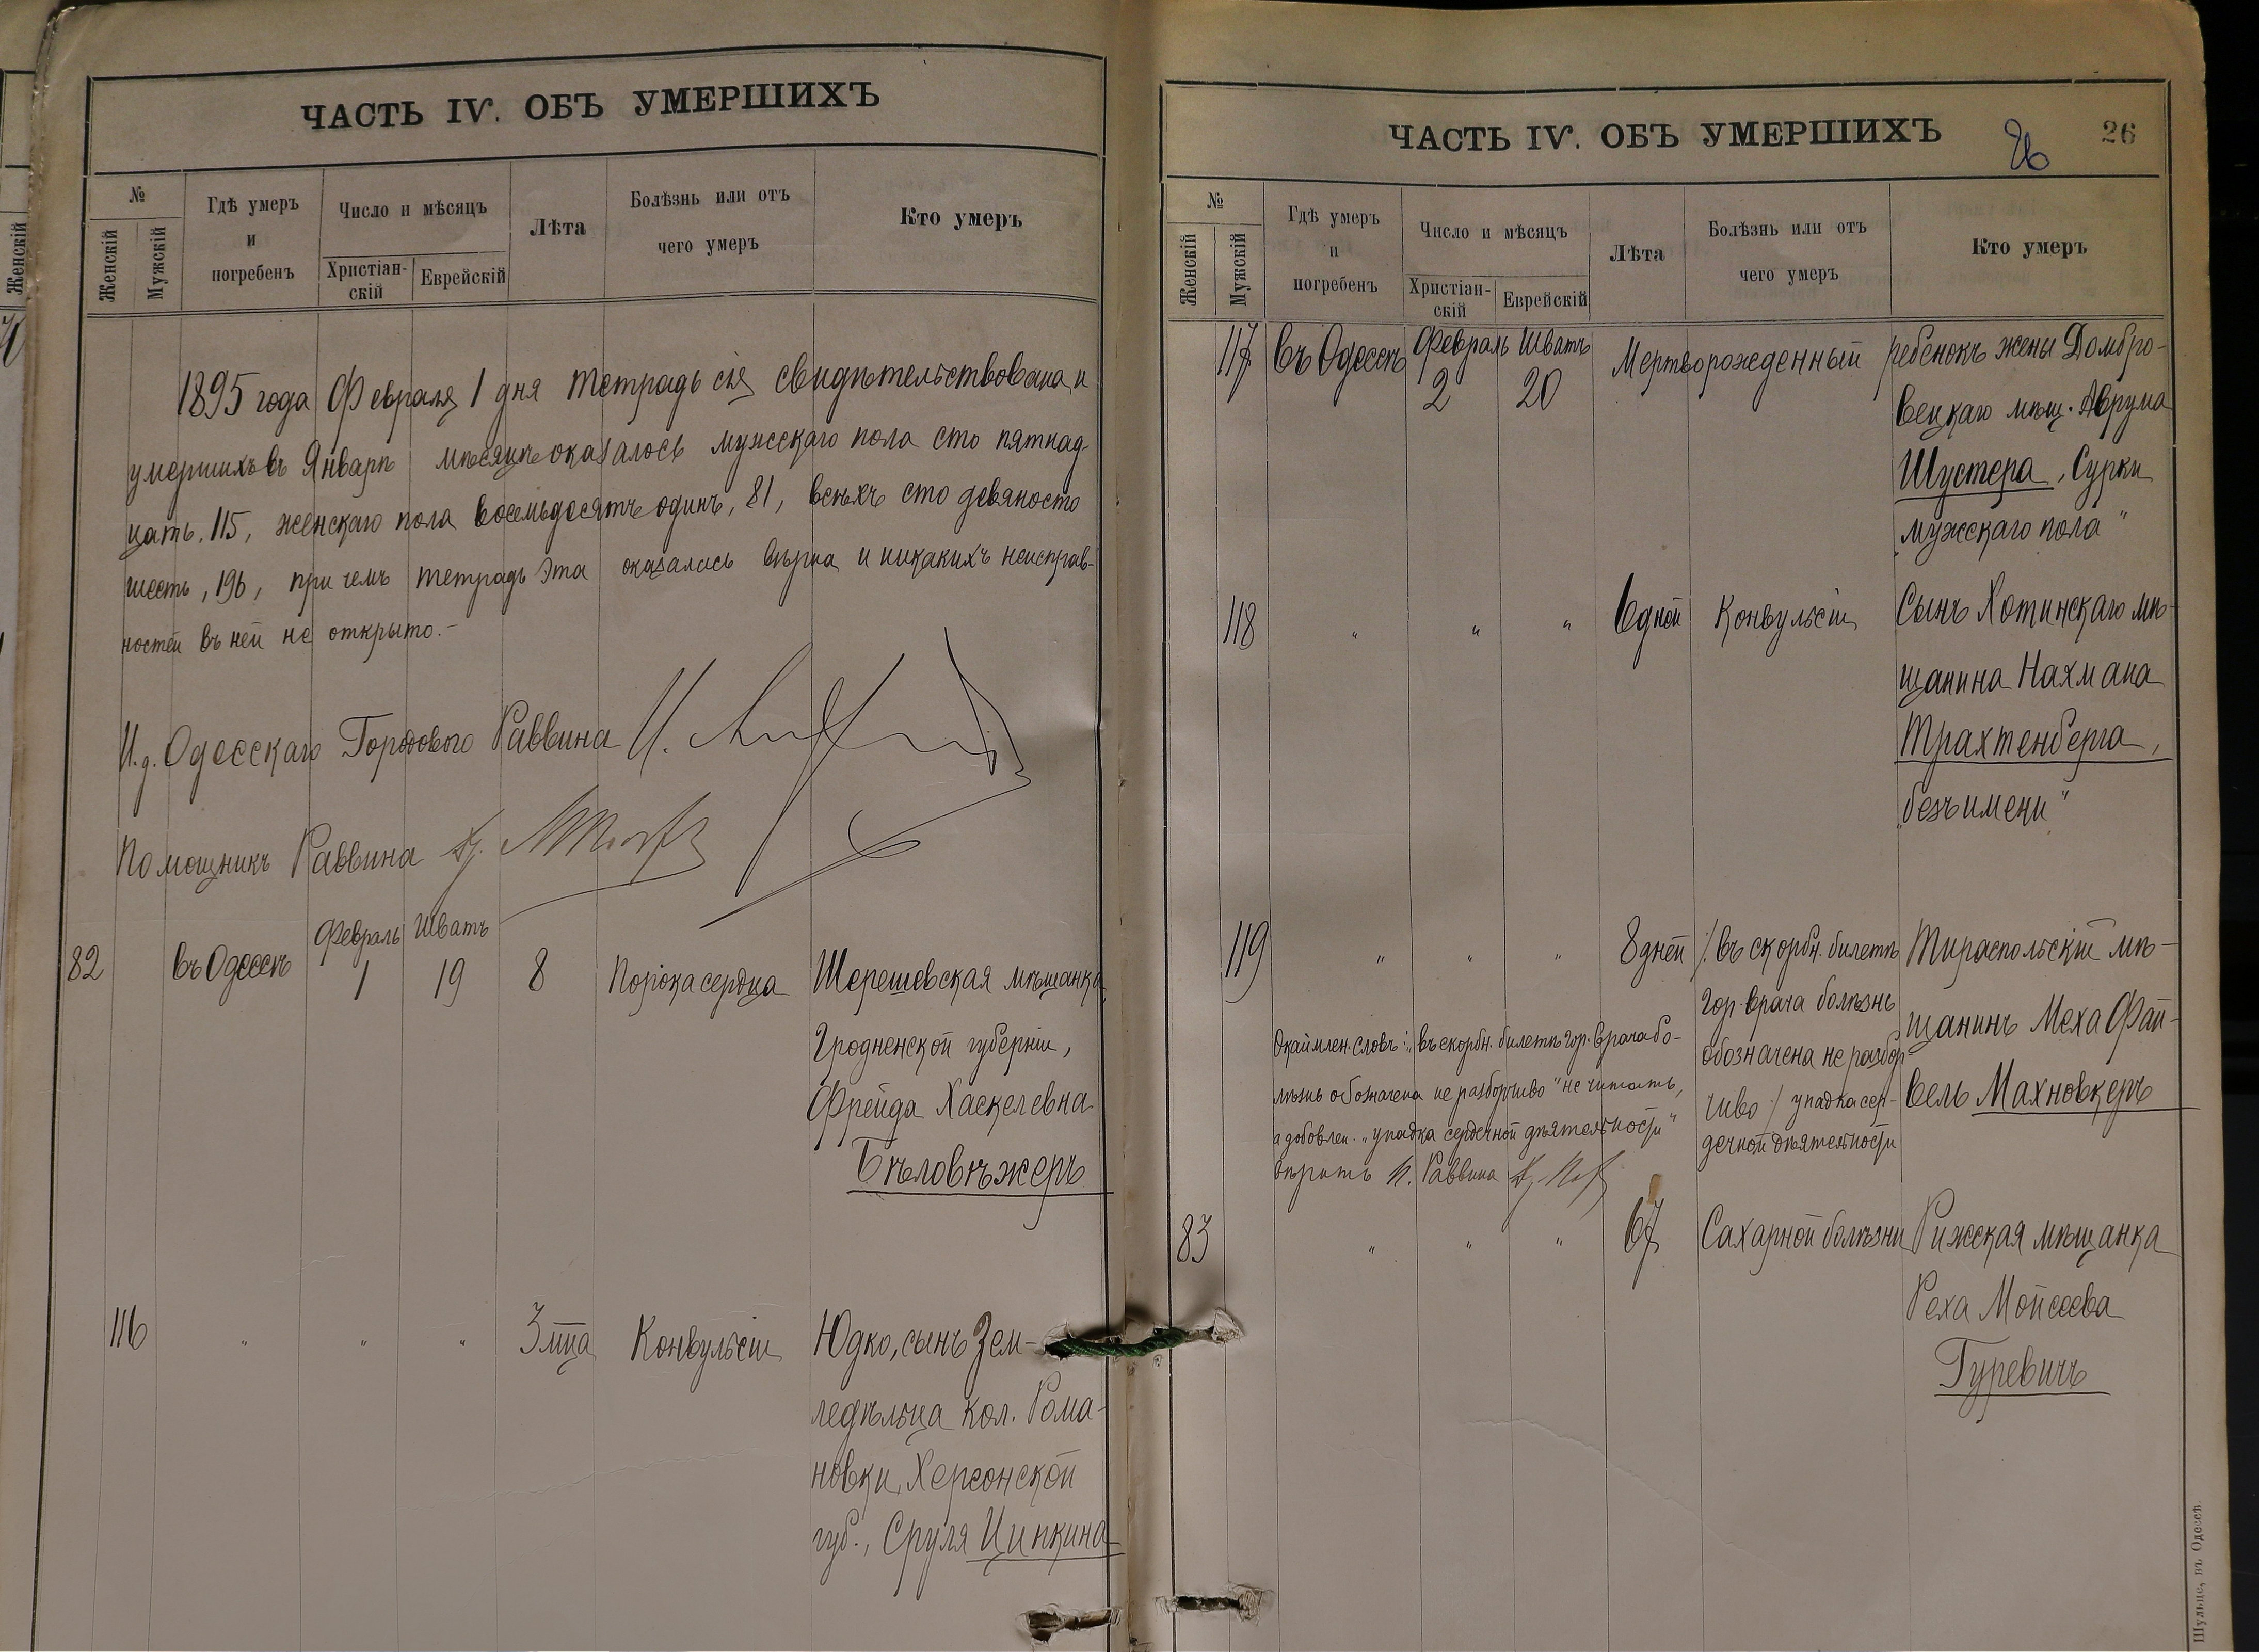 ЧАСТЬ IV. ОБЪ УМЕРШИХЪ
№
Женскій
Мужскій
Гдѣ умеръ
и
погребенъ
Число и мѣсяцъ
Христіан-
скій
Еврейскій
Лѣта
Болѣзнь или отъ
чего умеръ
Кто умеръ
1895 года Февраля 1 дня тетрадь сія свидѣтельствована и
умершихъ въ Январѣ мѣсяцѣ оказалось мужскаго пола сто пятнад-
цать, 115, женскаго пола восемьдесятъ одинъ, 81, всѣхъ сто девяносто
шесть, 196, при чемъ тетрадь эта оказалась вѣрна и никакихъ неисправ-
ностей въ ней не открыто.-
И.д. Одесскаго Городового Раввина
Помощникъ Раввина
82 въ Одессѣ Февраль 1 Шватъ 19 8 Порока сердца Шерешевская мѣщанка,
Гродненской губерніи,
Фрейда Хаскелевна
Бѣловѣжеръ
116 " " " 3 м-ца Конвульсіи Юдко, сынъ Зем-
ледѣльца кол. Рома-
новки, Херсонской
губ., Сруля Цинкина
Женскій
ЧАСТЬ IV. ОБЪ УМЕРШИХЪ
26
26
№
Женскій
Мужскій
Гдѣ умеръ
и
погребенъ
Число и мѣсяцъ
Христіан-
скій
Еврейскій
Лѣта
Болѣзнь или отъ
чего умеръ
Кто умеръ
117 въ Одессѣ Февраль 2 Шватъ 20 Мертворожденный ребенокъ жены Домбро-
вецкаго мѣщ. Аврума
Шустера, Сурки
„мужскаго пола"
118 " " " 6 дней Конвульсіи Сынъ Хотинскаго мѣ-
щанина Нахмана
Трахтенберга,
„безъ имени"
119 " " " 8 дней /. въ скорбн. билетѣ Тираспольскій мѣ-
гор. врача болѣзнь
щанинъ Меха Фай-
обозначена не разбор-
чиво ./ упадка сер-
вель Махновкеръ
дечной дѣятельности
Окаймлен. словъ: „въ скорбн. билетѣ гор. врача бо-
лѣзнь обозначена не разборчиво" не читать,
а добавлен. „упадка сердечной дѣятельности"
вѣрить П. Раввина
83 " " " 67 Сахарной болѣзни Рижская мѣщанка
Реха Мойсеева
Гуревичъ
Шульце, въ Одессѣ.